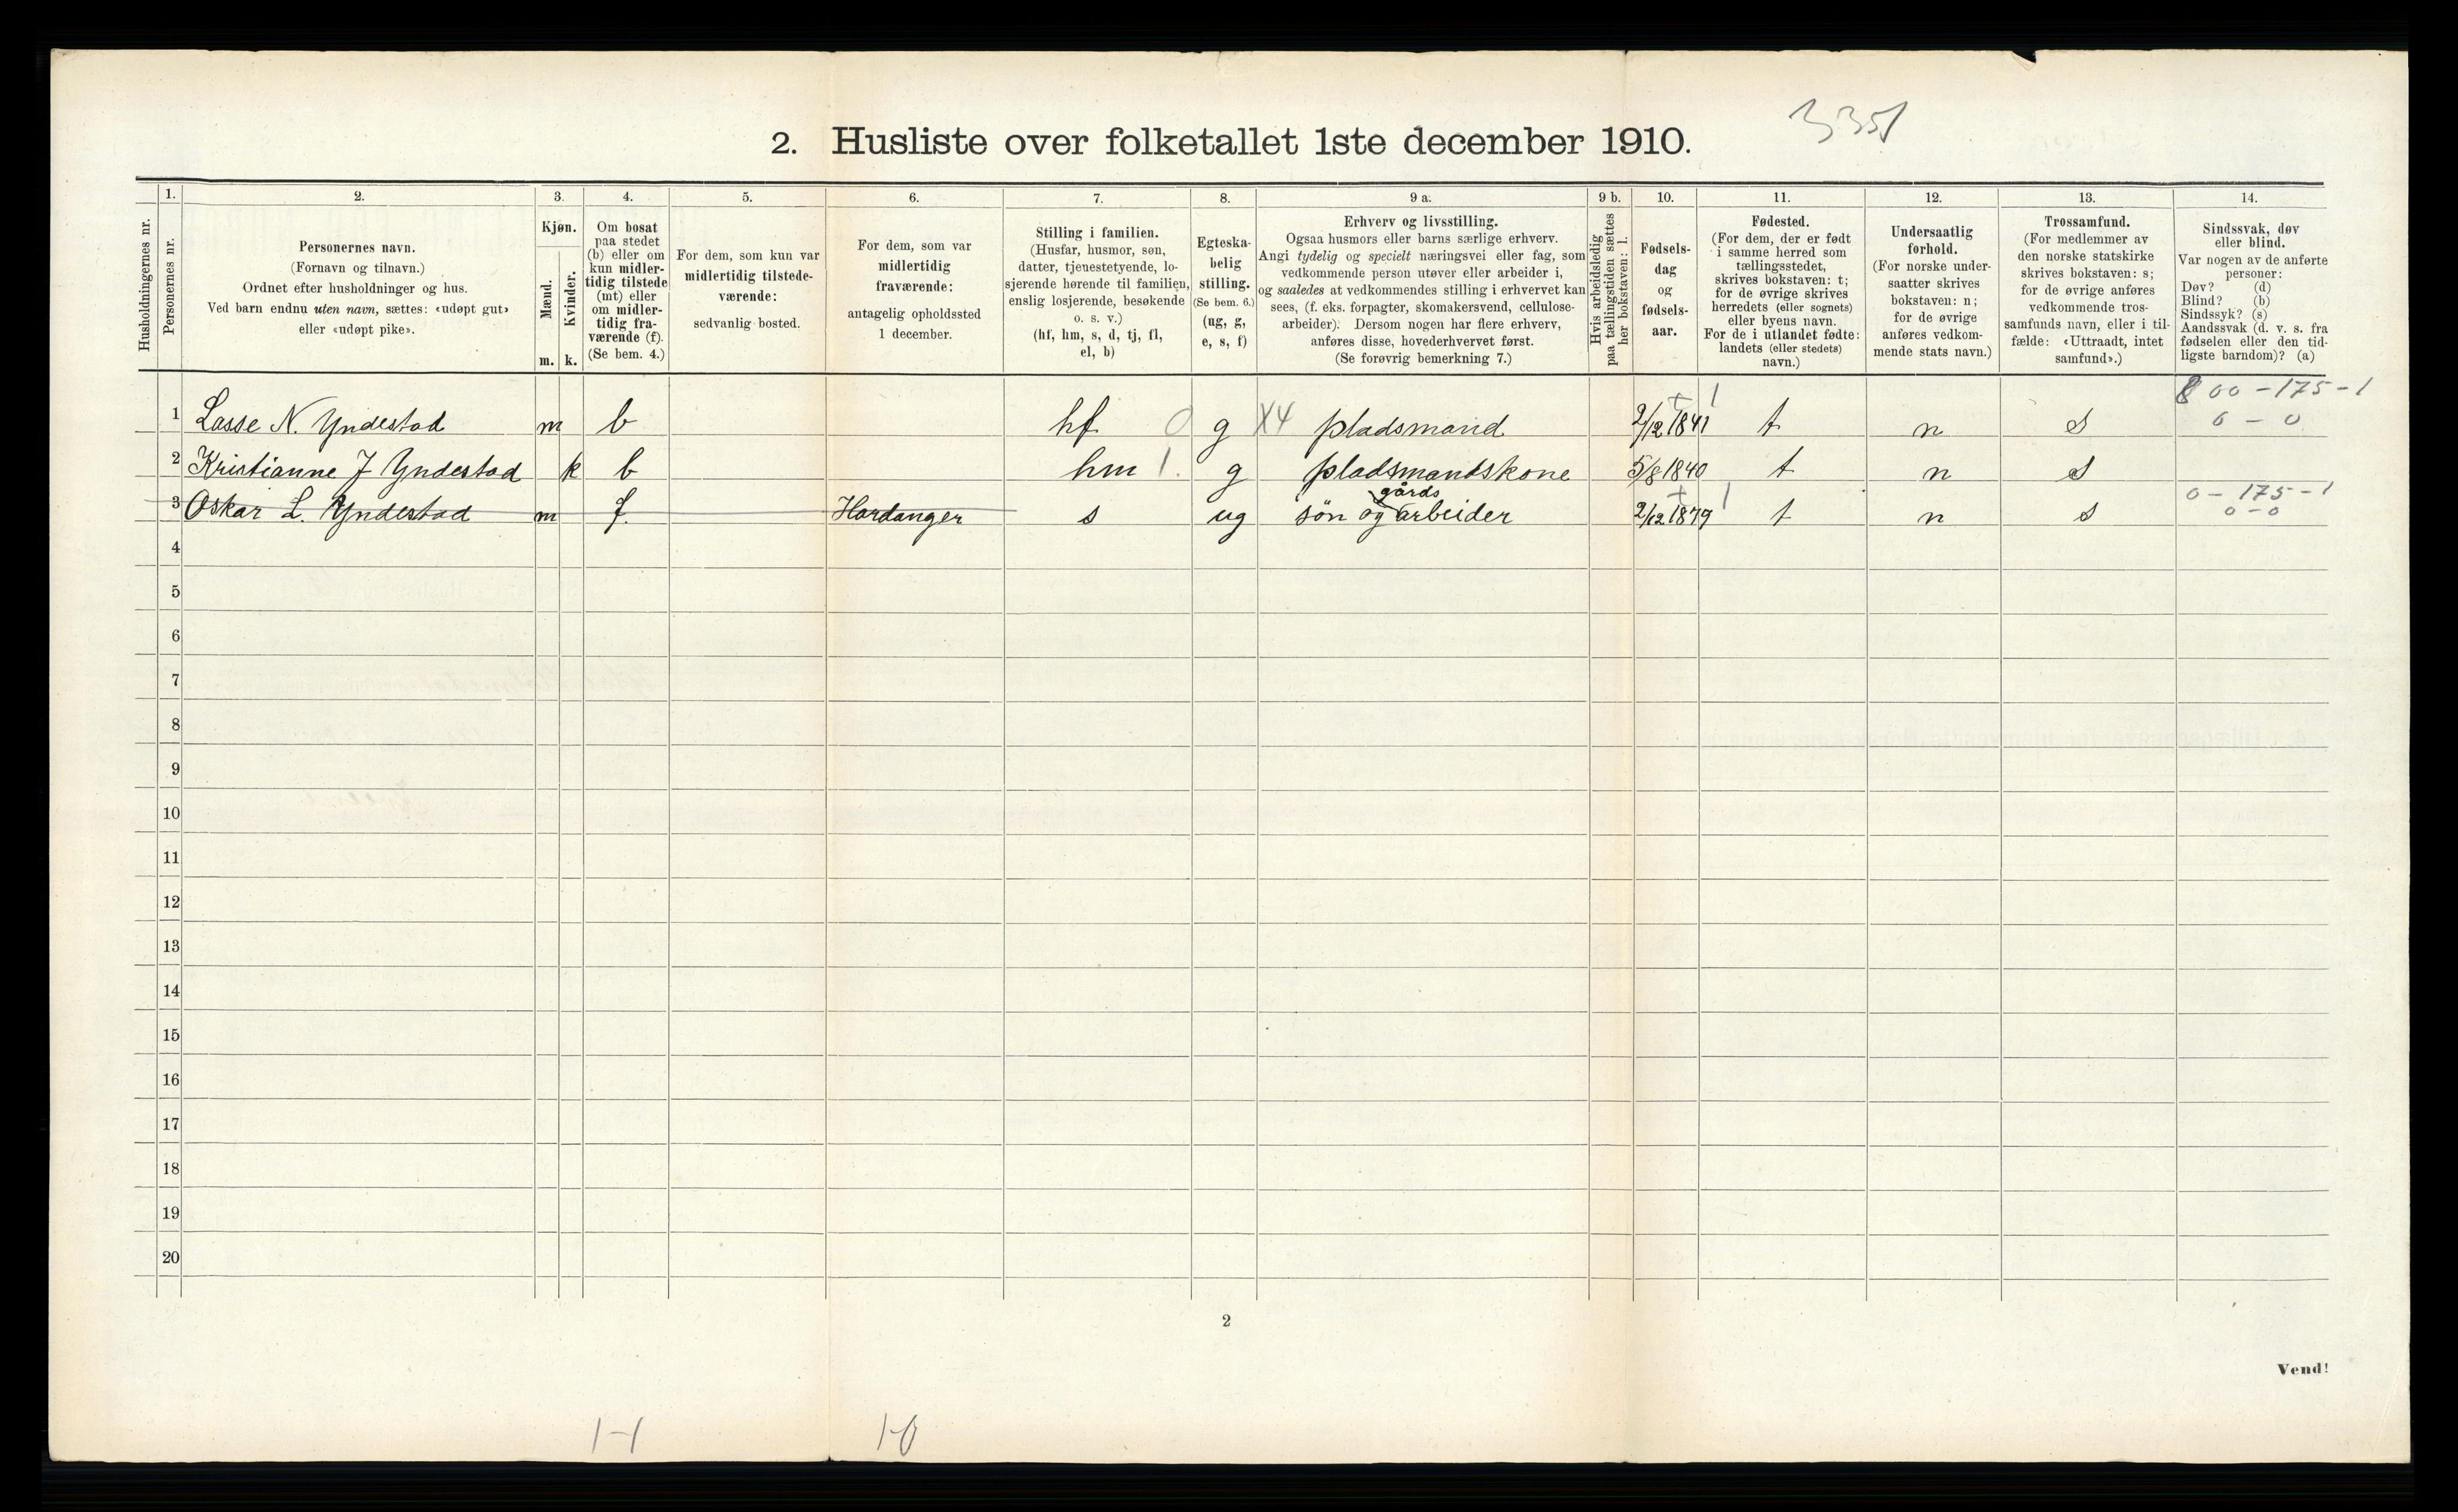 335
2. Husliste over folketallet 1ste december 1910.
Husholdningernes nr.
1.
Personernes nr.
2.
Personernes navn.
(Fornavn og tilnavn.)
Ordnet efter husholdninger og hus.
Ved barn endnu uten navn, sættes: «udøpt gut»
eller «udøpt pike».
3.
Kjøn.
Mænd.
Kvinder.
m. k.
4.
Om bosat
paa stedet
(b) eller om
kun midler-
tidig tilstede
(mt) eller
om midler-
tidig fra-
værende (f).
(Se bem. 4.)
5.
For dem, som kun var
midlertidig tilstede-
værende:
sedvanlig bosted.
6.
For dem, som var
midlertidig
fraværende:
antagelig opholdssted
1 december.
7.
Stilling i familien.
(Husfar, husmor, søn,
datter, tjenestetyende, lo-
sjerende hørende til familien,
enslig losjerende, besøkende
o. s. v.)
(hf, hm, s, d, tj, fl,
el, b)
8.
Egteska-
belig
stilling.
(Se bem. 6.)
(ug, g,
e, s, f)
9 a.
Erhverv og livsstilling.
Ogsaa husmors eller barns særlige erhverv.
Angi tydelig og specielt næringsvei eller fag, som
vedkommende person utøver eller arbeider i,
og saaledes at vedkommendes stilling i erhvervet kan
sees, (f. eks. forpagter, skomakersvend, cellulose-
arbeider). Dersom nogen har flere erhverv,
anføres disse, hovederhvervet først.
(Se forøvrig bemerkning 7.)
9 b.
Hvis arbeidsledig
paa tællingstiden sættes
her bokstaven: l.
10.
Fødsels-
dag
og
fødsels-
aar.
11.
Fødested.
(For dem, der er født
i samme herred som
tællingsstedet,
skrives bokstaven: t;
for de øvrige skrives
herredets (eller sognets)
eller byens navn.
For de i utlandet fødte:
landets (eller stedets)
navn.)
12.
Undersaatlig
forhold.
(For norske under-
saatter skrives
bokstaven: n;
for de øvrige
anføres vedkom-
mende stats navn.)
13.
Trossamfund.
(For medlemmer av
den norske statskirke
skrives bokstaven: s;
for de øvrige anføres
vedkommende tros-
samfunds navn, eller i til-
fælde: «Uttraadt, intet
samfund».)
14.
Sindssvak, døv
eller blind.
Var nogen av de anførte
personer:
Døv? (d)
Blind? (b)
Sindssyk? (s)
Aandssvak (d. v. s. fra
fødselen eller den tid-
ligste barndom)? (a)
800-175-1
1 Lasse N. Yndestad m b hf 0 g X4 pladsmand 2/12 1841 t n s 0 - 0
2 Kristianne J Yndestad k b hm 1. g pladsmandskone 5/8 1840 t n s
gårds + 1 0 - 175 - 1
3 Oskar L. Yndestad m f. Hardanger s ug søn og arbeider 2/12 1879 t n s 0 - 0
4
5
6
7
8
9
10
11
12
13
14
15
16
17
18
19
20
2
Vend!
1-1 1-0